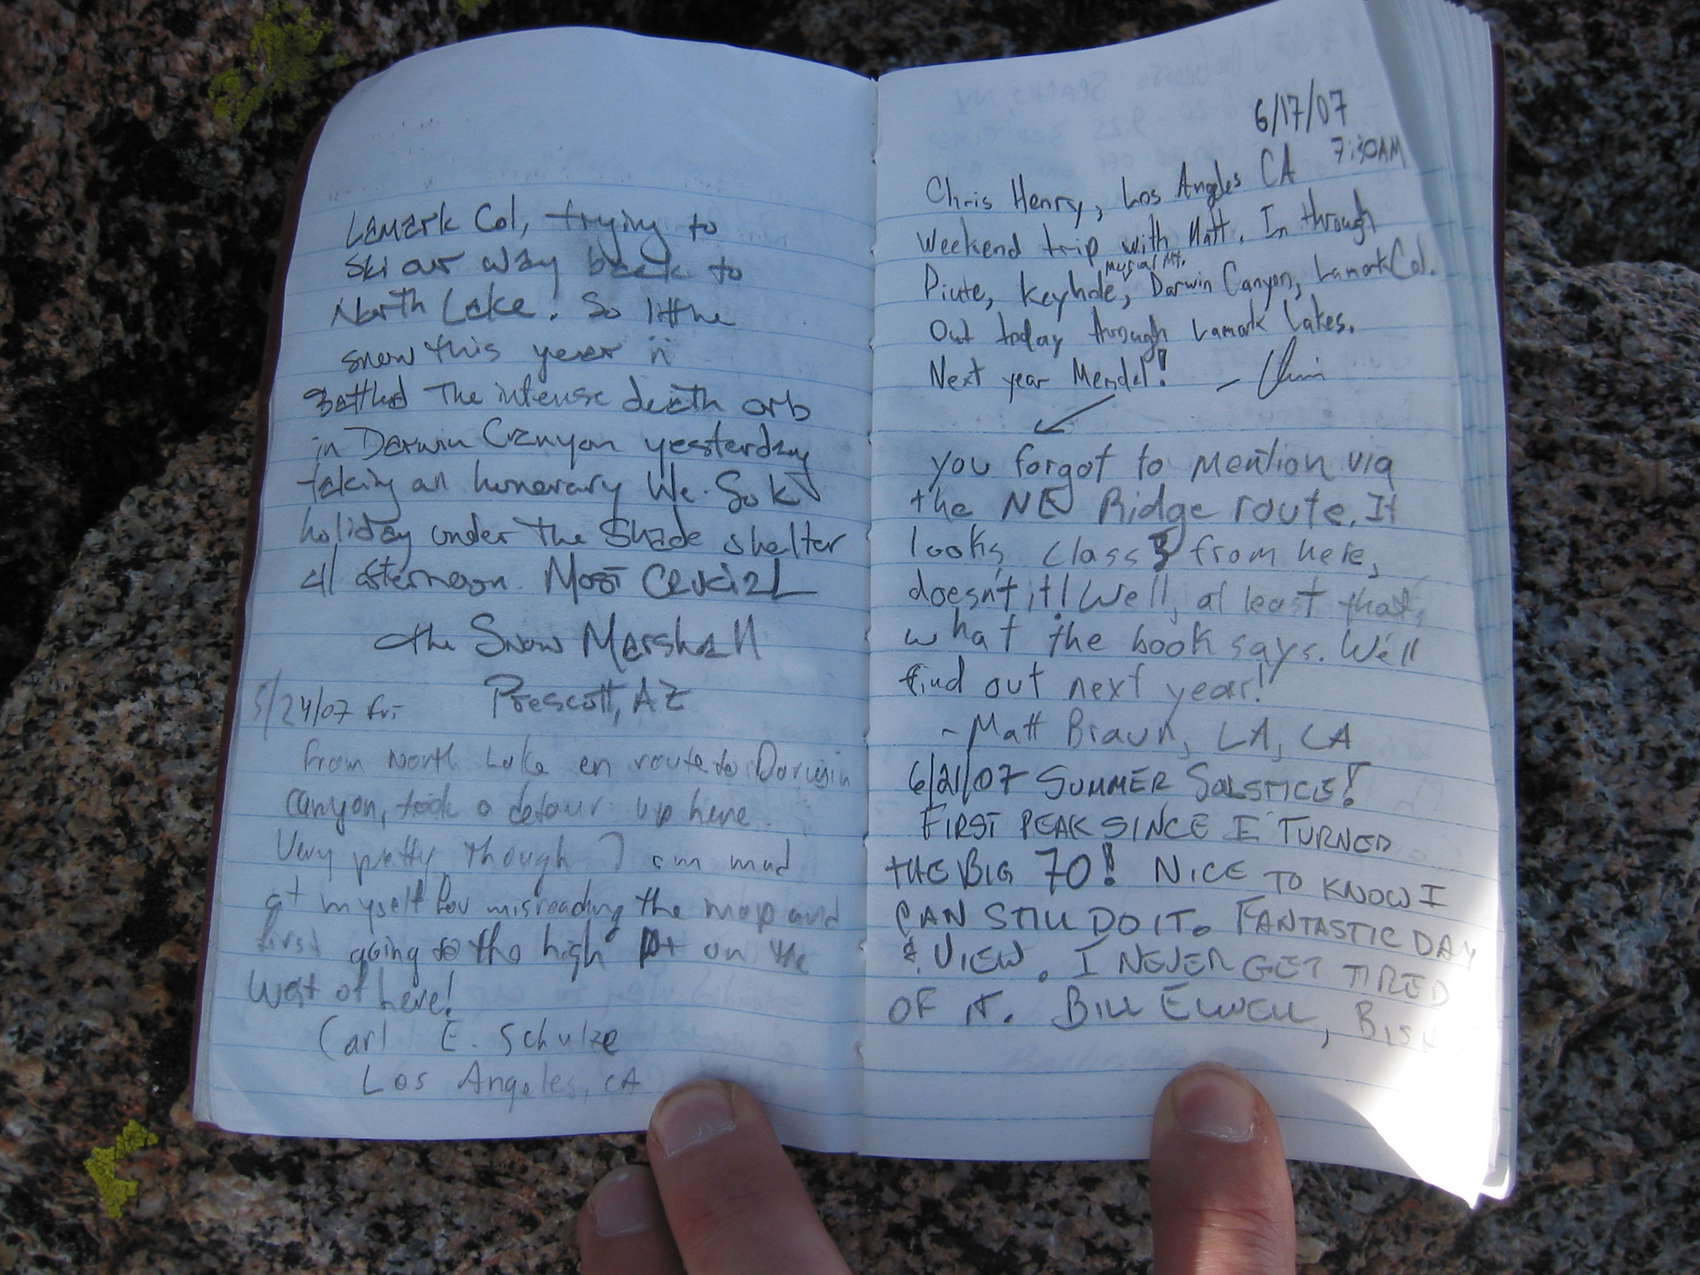 Lamark Col, trying to
ski our way back to
North Lake! So little
snow this year
Battled The intense death orb
in Darwin Canyon yesterday
taking an honerary We. Sok
holiday under the Shade shelter
all afternoon. Most Crucial
the Snow Marshall
Prescott, AZ
5/24/07 Fri
From North Lake en route to Darwin
Canyon, took a detour up here.
Very pretty, though I am mad
at myself for misreading the map and
first going to the high pt on the
west of here!
Carl E. Schulze
Los Angeles, CA
6/17/07
7:30AM
Chris Henry, Los Angeles CA
Weekend trip with Matt. In through
Piute, Keyhole, Muriel Mt. Darwin Canyon, Lamark Col.
Out today through Lamark Lakes.
Next year Mendel! - Chris
you forgot to mention via
the NE Ridge route. It
looks class 3 from here,
doesn't it! Well, at least that,
what the book says. We'll
find out next year!
- Matt Braun, LA, CA
6/21/07 SUMMER SOLSTICE!
FIRST PEAK SINCE I TURNED
THE BIG 70! NICE TO KNOW I
CAN STILL DO IT. FANTASTIC DAY
& VIEW. I NEVER GET TIRED
OF IT. BILL ELWELL, BIS